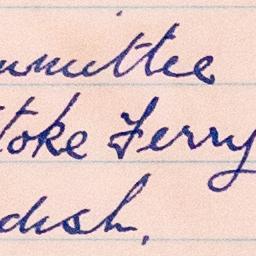 mmittee
toke Ferry
dish.